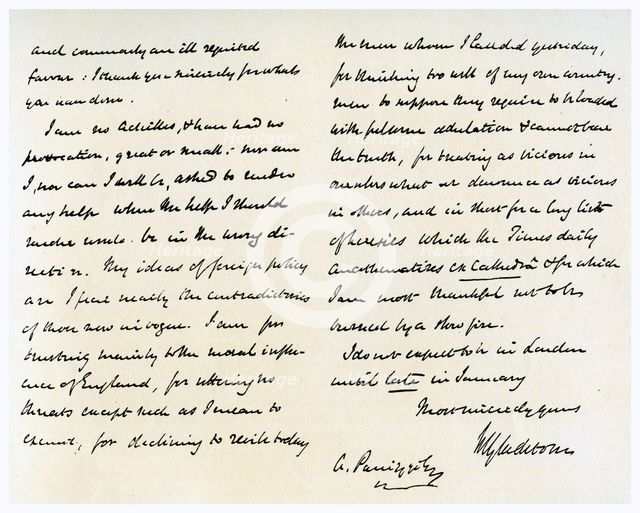 and commonly an ill requited
favour: I thank you sincerely for what
you have done.
I am no Achilles, & have had no
provocation, great or small: nor am
I, nor can I well be, asked to render
any help when the help I should
render would be in the wrong di-
rection. My ideas of foreign policy
are I fear nearly the contradictories
of those now in vogue. I am for
trusting mainly to the moral influ-
ence of England, for uttering no
threats except such as I mean to
execute, for declining to revile today
the men whom I lauded yesterday,
for thinking too well of my own country-
men to suppose they require to be loaded
with fulsome adulation & cannot bear
the truth, for treating as vicious in
ourselves what we denounce as vicious
in others, and in short for a long list
of heresies which the Times daily
anathematizes ex Cathedrâ & for which
I am most thankful not to be
burned by a slow fire.
I do not expect to be in London
until late in January
Most sincerely yours
WEGladstone
A. Panizzi Esq